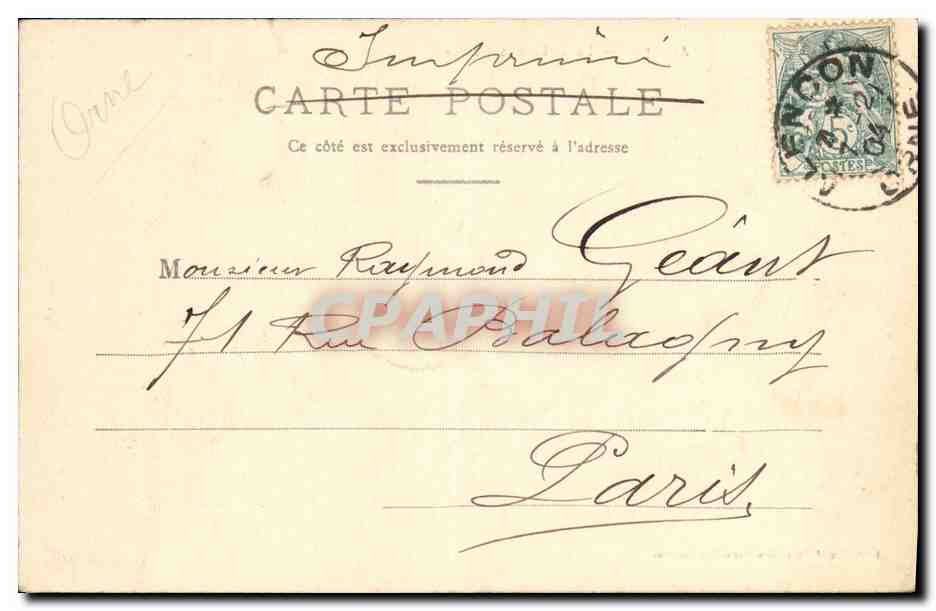 Imprimé
Orne
CARTE POSTALE
Ce côté est exclusivement réservé à l'adresse
Monsieur Raymond Géant
71 Rue Balagny
Paris
CPAPHIL
ALENCON
ORNE
04
5c
POSTES